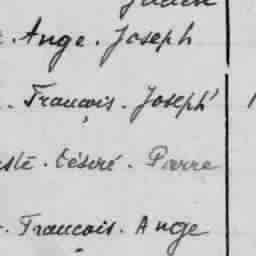 . Ange. Joseph
. François. Joseph
. Désiré. Pierre
. François. Ange